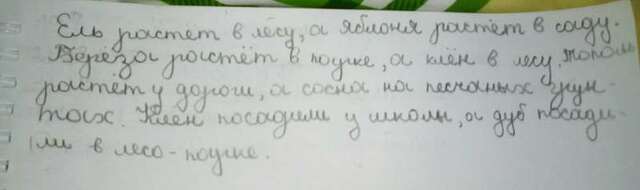 Ель растёт в лесу, а яблоня растёт в саду.
Берёза растёт в парке, а клён в лесу. Тополь
растёт у дороги, а сосна на песчаных грун-
тах. Клён посадили у школы, а дуб посади-
ли в лесо-парке.